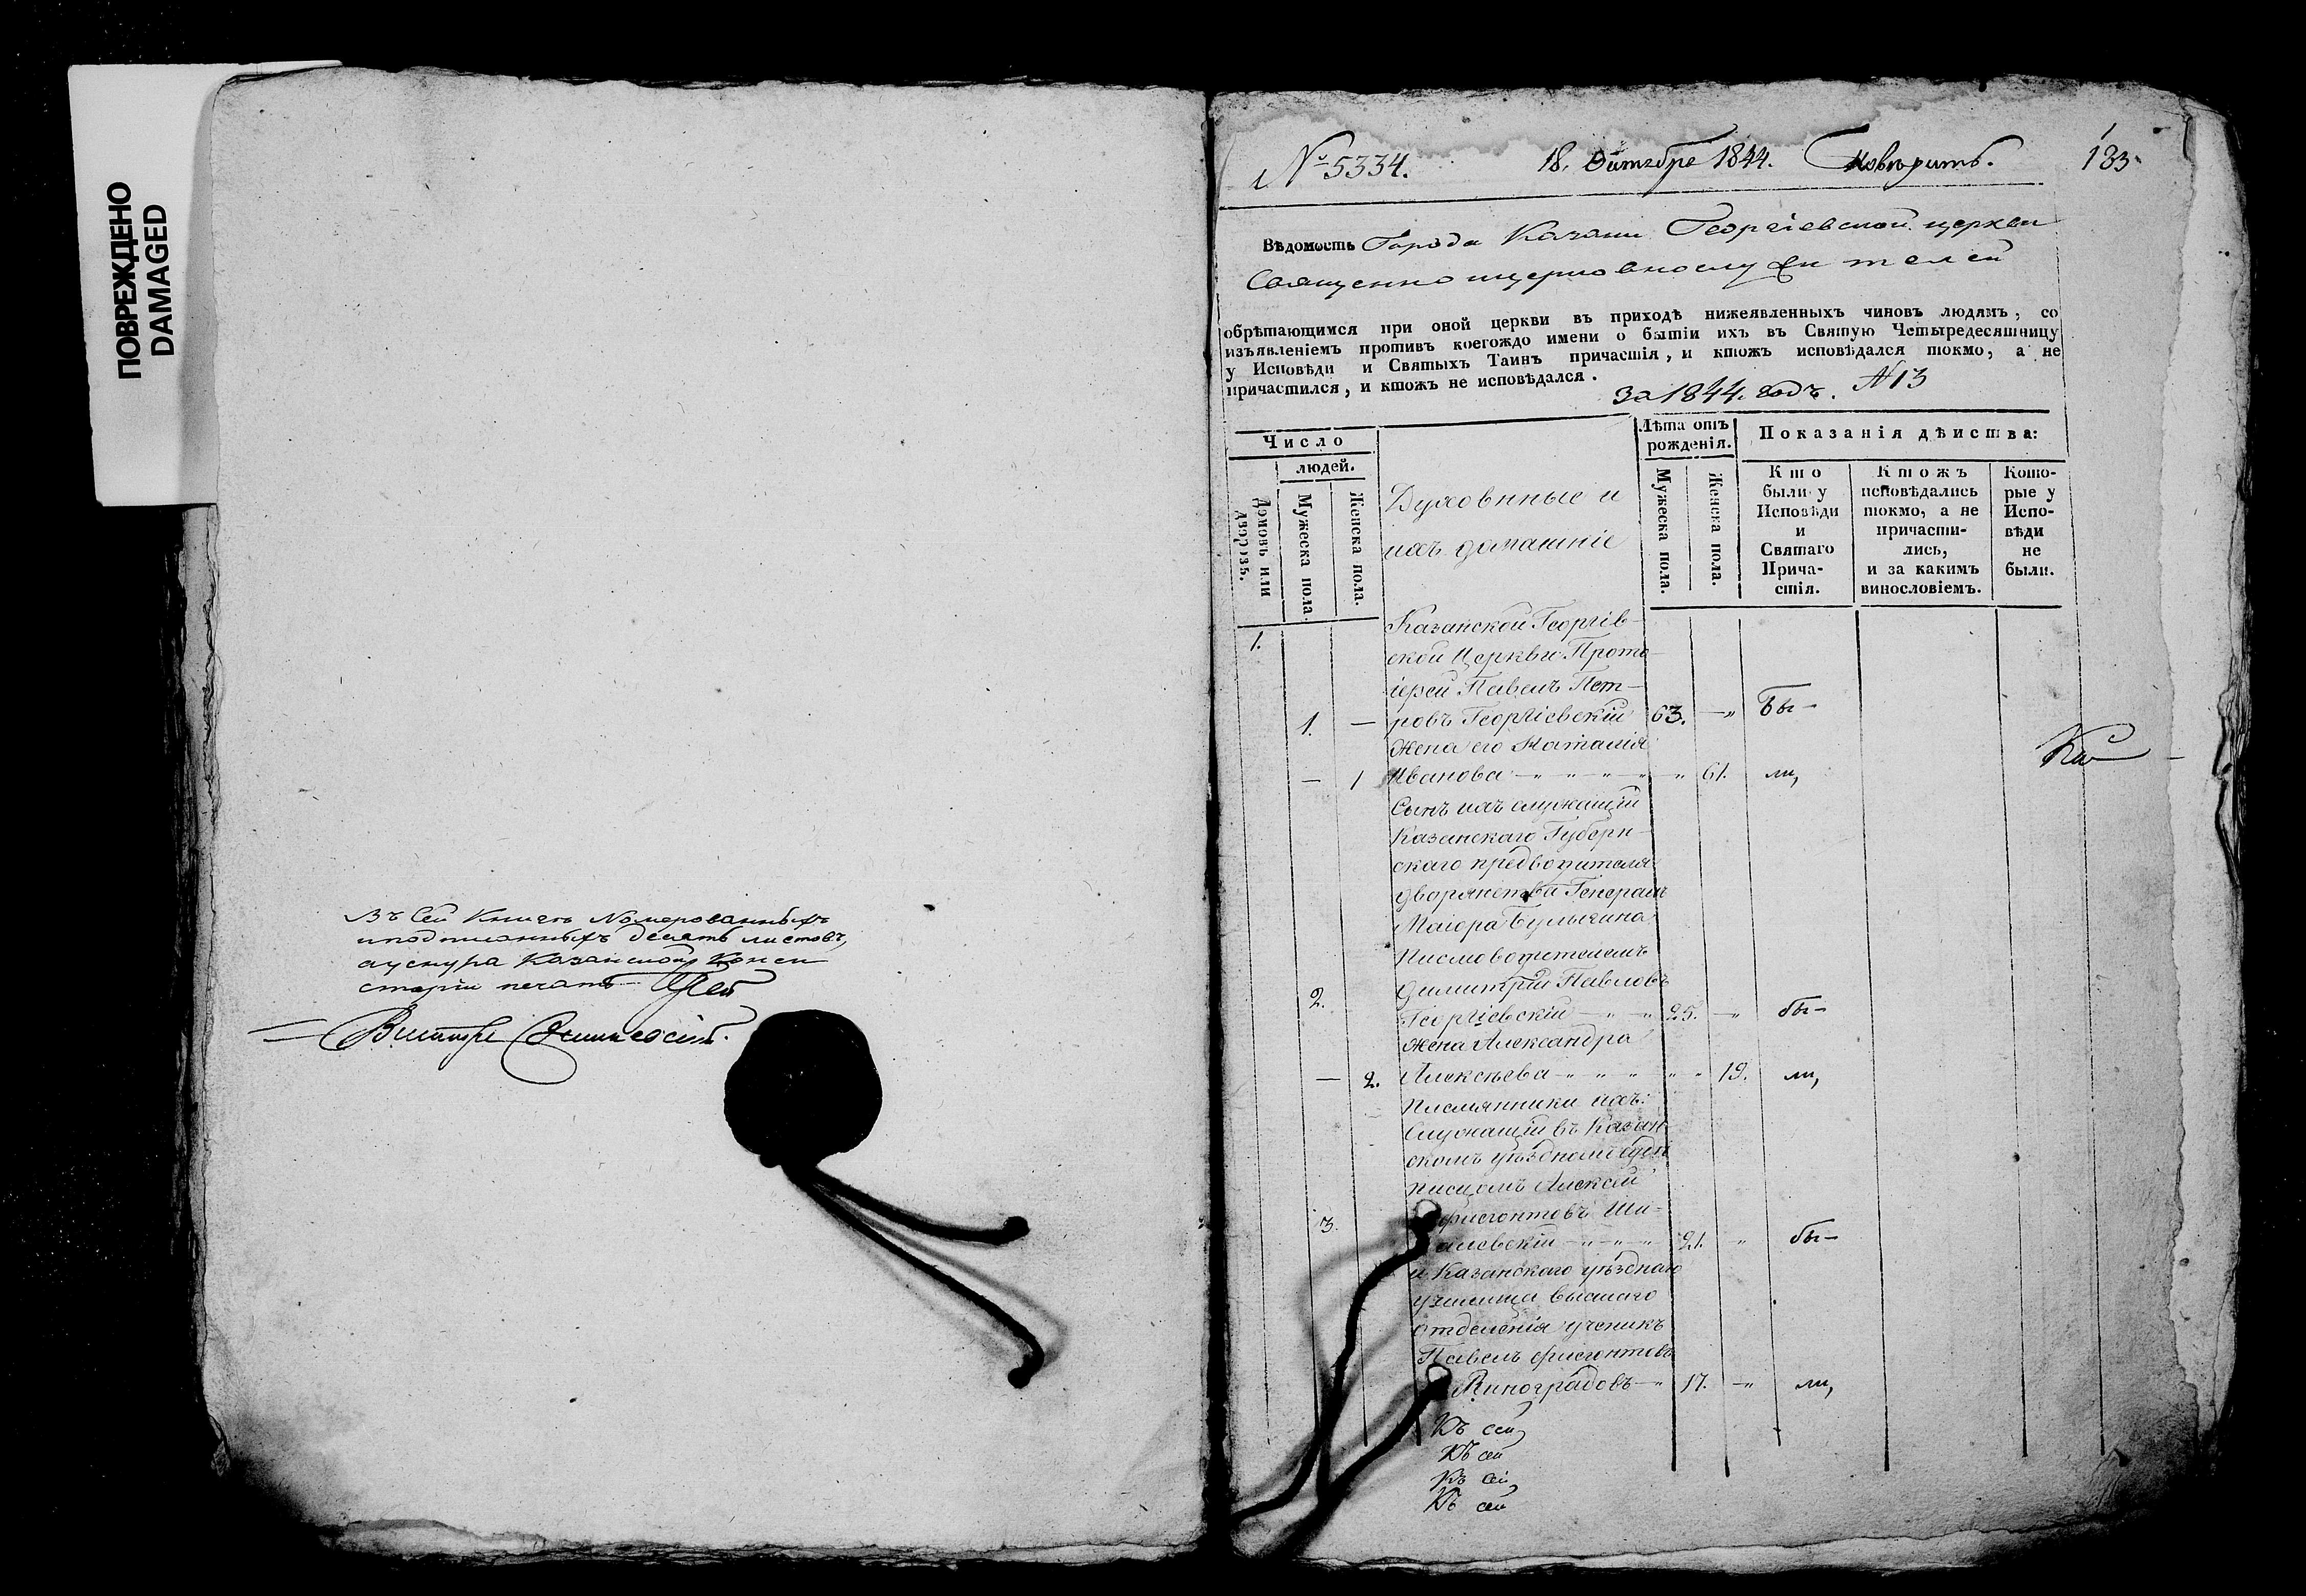 ПОВРЕЖДЕНО
DAMAGED
Въ сей книгѣ Номерованныхъ
и подписанныхъ десять листовъ,
а у снура Казанской Конси
сторіи печать
№ 5334.
18. Октября 1844. Повѣрить.
133
Вѣдомость Города Казани Георгіевской церкви
Священно церковнослужителей
обрѣтающимся при оной церкви въ приходѣ нижеявленныхъ чиновъ людямъ, со
изъявленіемъ противъ коегождо имени о бытіи ихъ въ Святую Четыредесятницу
у Исповѣди и Святыхъ Таинъ причастія, и ктожъ исповѣдался токмо, а не
причастился, и ктожъ не исповѣдался.
За 1844. годъ. №13
Число
людей.
Домовъ или
дворовъ.
Мужеска пола.
Женска пола.
Духовные и
ихъ домашніе
Лѣта отъ
рожденія.
Мужеска пола.
Женска пола.
Показанія дѣйства:
Кто
были у
Исповѣди
и
Святаго
Прича-
стія.
Ктожъ
исповѣдались
токмо, а не
причасти-
лись,
и за какимъ
винословіемъ.
Кото-
рые у
Испо-
вѣди
не
были.
1.
Казанской Георгіев-
ской Церкви Прото-
іерей Павелъ Пет-
1. — ровъ Георгіевскій 63. — Бы-
Жена его Наталія
— 1 Иванова 61. ли,
Сынъ ихъ служащій
Казанскаго Губерн-
скаго предводителя
дворянства Генералъ
Маіора Булыгина
Писмоводителемъ
Димитрій Павловъ
2. Георгіевскій 25. бы-
Жена Александра
— 2. Алексѣева 19. ли,
Племянники ихъ:
Служащій въ Казан-
скомъ уѣздномъ судѣ
писцомъ Алексѣй
3.
21. бы-
и Казанскаго уѣзднаго
училища высшаго
отдѣленія ученикъ
Павелъ
Виноградовъ 17. ли,
Къ сей
Къ сей
Къ сей
Къ сей